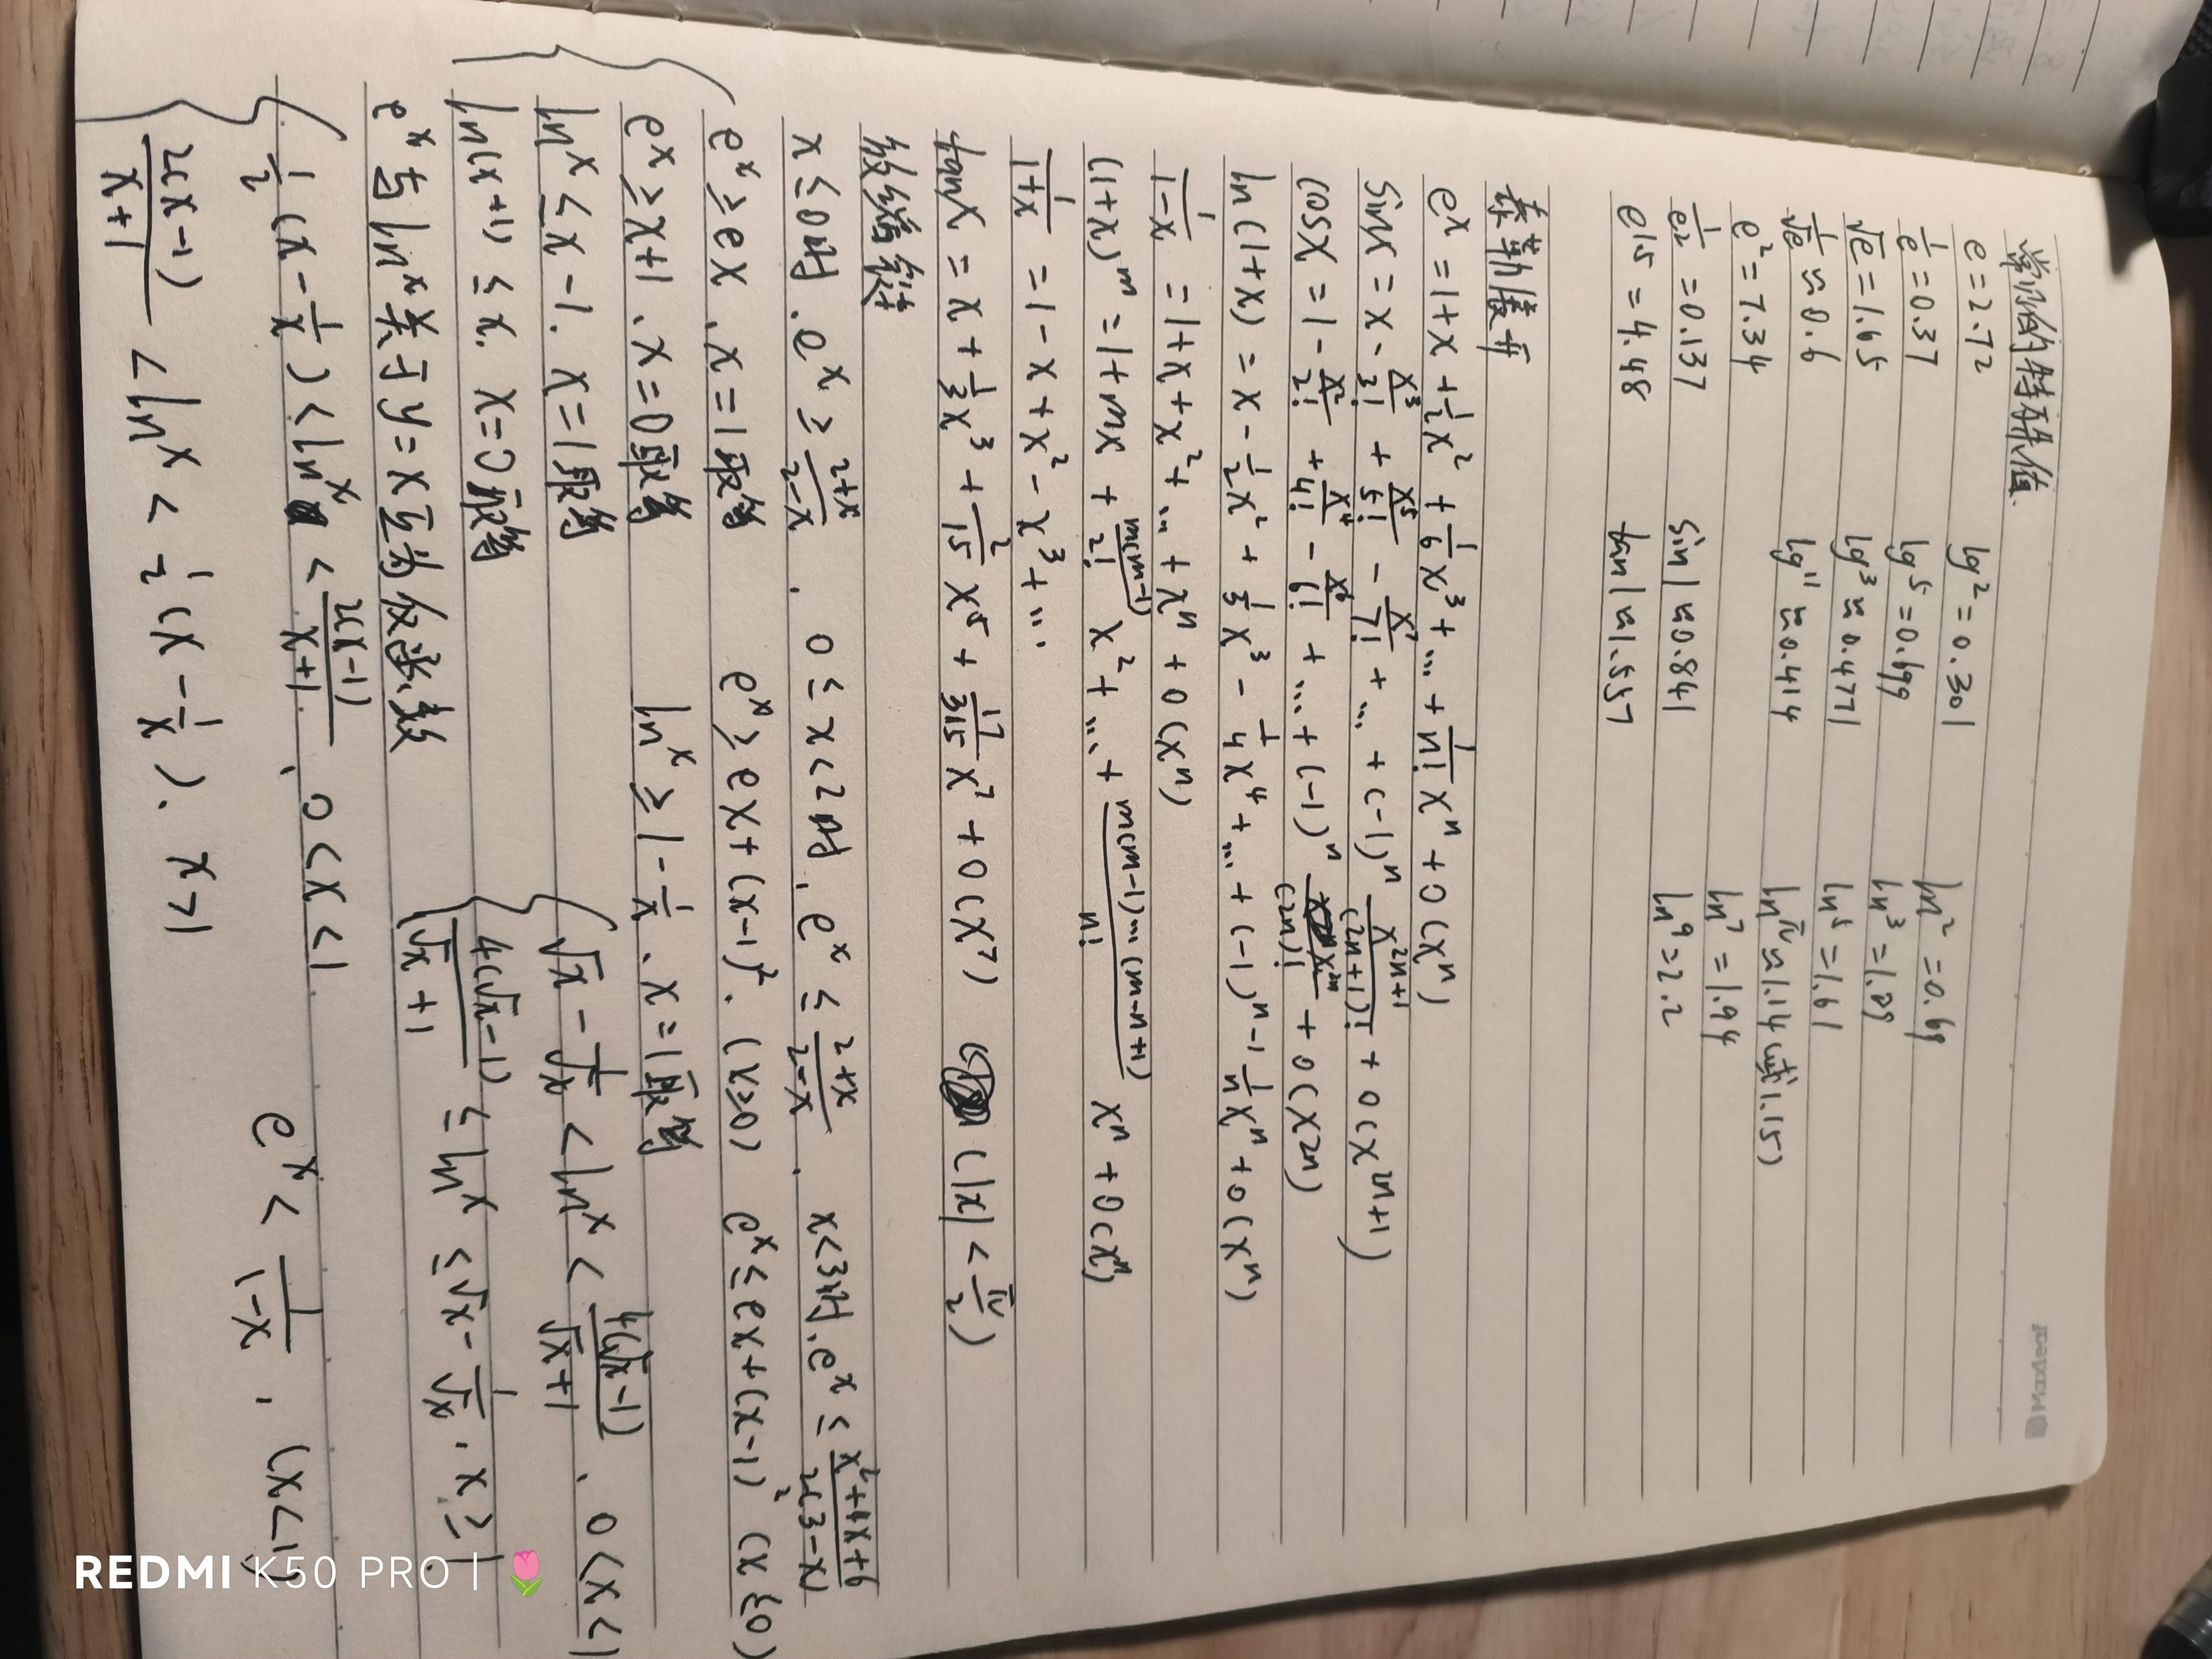 Maxleaf
常记的特殊值
e=2.72 lg2=0.301 ln2=0.69
1/e=0.37 lg5=0.699 ln3=1.09
√e=1.65 lg3≈0.4771 ln5=1.61
1/√e≈0.6 lg11≈0.414 lnπ≈1.14(或1.15)
e²=7.34 ln7=1.94
1/e²=0.137 sin1≈0.841 ln9=2.2
e^1.5=4.48 tan1≈1.557
泰勒展开
e^x=1+x+1/2x²+1/6x³+…+1/n!x^n+0(x^n)
sinx=x-x³/3!+x⁵/5!-x⁷/7!+…+(-1)^n x^(2n+1)/(2n+1)!+0(x^(2n+1))
cosx=1-x²/2!+x⁴/4!-x⁶/6!+…+(-1)^n x^(2n)/(2n)!+0(x^(2n))
ln(1+x)=x-1/2x²+1/3x³-1/4x⁴+…+(-1)^(n-1) 1/n x^n+0(x^n)
1/(1-x)=1+x+x²+…+x^n+0(x^n)
(1+x)^m=1+mx+m(m-1)/2! x²+…+m(m-1)…(m-n+1)/n! x^n+0(x^n)
1/(1+x)=1-x+x²-x³+…
tanx=x+1/3x³+2/15x⁵+17/315x⁷+0(x⁷) (|x|<π/2)
放缩链
x≤0时.e^x≥(x+2)/(x-2). 0≤x<2时.e^x≤(x+2)/(x-2). x<3时.e^x≤(x²+4x+6)/2(3-x)
e^x≥ex、x=1取等 e^x≥ex+(x-1)².(x≥0) e^x≤ex+(x-1)²(x≤0)
e^x≥x+1、x=0取等 lnx≥1-1/x、x=1取等
lnx≤x-1.x=1取等 √x-1/√x<lnx<4(√x-1)/(√x+1)、0<x<1
ln(x+1)≤x.x=0取等 4(√x-1)/(√x+1)≤lnx≤√x-1/√x.x≥1
e^x与lnx关于y=x互为反函数
1/2(x-1/x)<lnx<2(x-1)/(x+1)、0<x<1 e^x<1/(x-1),(x>1)
2(x-1)/(x+1)<lnx<1/2(x-1/x).x>1
REDMI K50 PRO | 🌷